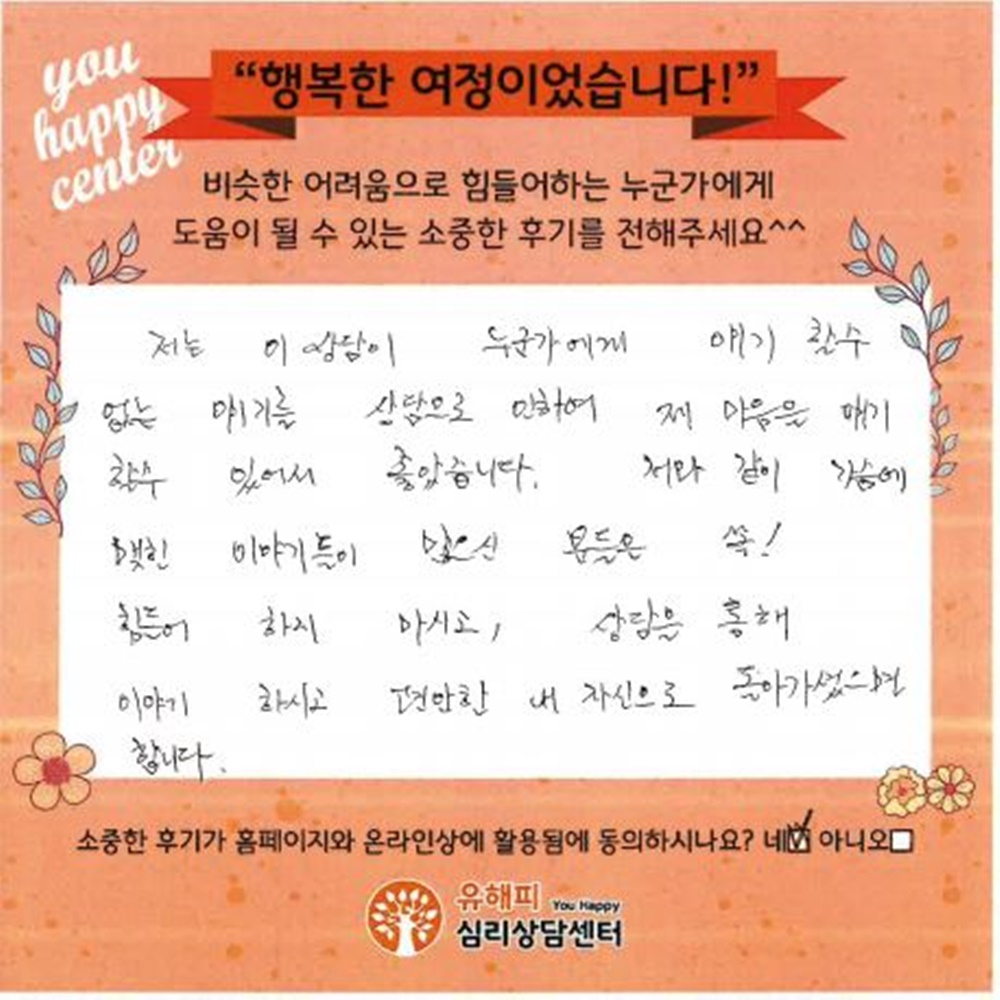 you
happy
center
“행복한 여정이었습니다!”
비슷한 어려움으로 힘들어하는 누군가에게
도움이 될 수 있는 소중한 후기를 전해주세요^^
저는 이 상담이 누군가에게 얘기 할수
없는 얘기를 상담으로 인하여 제 마음을 얘기
할수 있어서 좋았습니다. 저와 같이 가슴에
맺힌 이야기들이 많으신 분들은 쏙!
힘들어 하지 마시고, 상담을 통해
이야기 하시고 편안한 내 자신으로 돌아가셨으면
합니다.
소중한 후기가 홈페이지와 온라인상에 활용됨에 동의하시나요? 네☑ 아니오☐
유해피 You Happy
심리상담센터